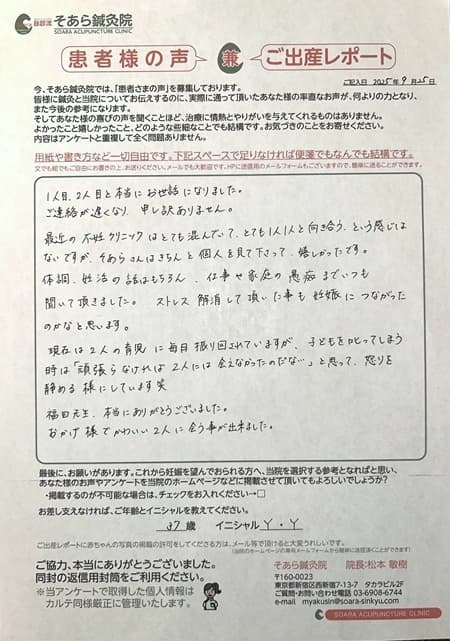 そあら鍼灸院
SOARA ACUPUNCTURE CLINIC
患者様の声 兼 ご出産レポート
ご記入日 2025年9月25日
今、そあら鍼灸院では、「患者さまの声」を募集しております。
皆様に鍼灸と当院についてお伝えするのに、実際に通って頂いたあなた様の率直なお声が、何よりの力となり、
また今後の参考になります。
そしてあなた様の喜びの声を聞くことほど、治療に情熱とやりがいを与えてくれるものはありません。
よかったこと嬉しかったこと、どのような些細なことでも結構です。お気づきのことをお寄せください。
内容はアンケートと重複して全く問題ありません。
用紙や書き方など一切自由です。下記スペースで足りなければ便箋でもなんでも結構です。
文でも絵でもご自由にお書きの上、お送りください。メールでも大歓迎です。HPに送信用のメールフォームもございますので、簡単に送ることができます。
1人目、2人目と本当にお世話になりました。
ご連絡が遅くなり、申し訳ありません。
最近の不妊クリニックはとても混んでいて、とても1人1人と向き合う、という感じは
ないですが、そあらさんはきちんと個人を見て下さって、嬉しかったです。
体調、妊活の話はもちろん、仕事や家庭の愚痴までいつも
聞いて頂きました。ストレス解消して頂いた事も妊娠につながった
のかなと思います。
現在は2人の育児に毎日振り回されていますが、子どもを叱ってしまう
時は「頑張らなければ2人には会えなかったのだな…」と思って、怒りを
静める様にしています笑
福田先生、本当にありがとうございました。
おかげ様でかわいい2人に会う事が出来ました。
最後に、お願いがあります。これから妊娠を望んでおられる方へ、当院を選択する参考となればと思い、
あなた様のお声やアンケートを当院のホームページなどに掲載させて頂いてもよろしいでしょうか?
・掲載するのが不可能な場合は、チェックをお入れください→□
お差し支えなければ、ご年齢とイニシャルを教えてください。
37歳 イニシャル Y・Y
ご出産レポートに赤ちゃんの写真の掲載の許可をしてくださる方は、メール等で頂けると大変うれしいです。
(当院のホームページの専用メールフォームから簡単に送信頂くことができます)
ご協力、本当にありがとうございました。
同封の返信用封筒をご利用ください。
※当アンケートで取得した個人情報は
カルテ同様厳正に管理いたします。
そあら鍼灸院 院長:松本 敏樹
〒160-0023
東京都新宿区西新宿7-13-7 タカラビル2F
ご質問・お問い合わせ電話 03-6908-6744
e-mail myakusin@soara-sinkyu.com
SOARA ACUPUNCTURE CLINIC そあら鍼灸院